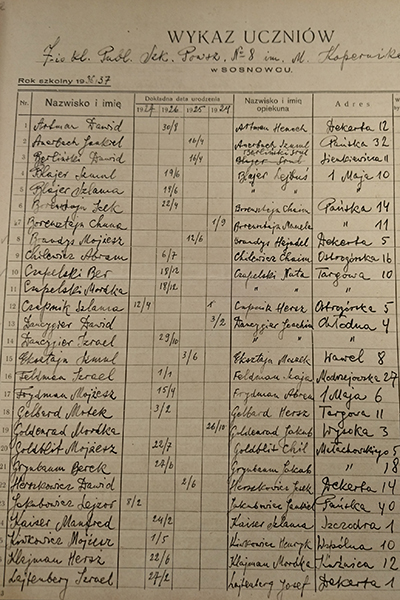 WYKAZ UCZNIÓW
kl. Publ. Szk. Powsz. № 8 im. M. Kopernika
W SOSNOWCU.
Rok szkolny 1936/37
Nr. Nazwisko i imię Dokładna data urodzenia Nazwisko i imię opiekuna Adres
1927 1926 1925 1924
1 Artman Dawid 30/8 Artman Henoch Dekerta 12
2 Auerbach Jankel 16/4 Auerbach Pańska 32
3 Berliński Dawid 16/4 Berliński Srul Sienkiewicza 11
4 Blajer 19/6 Blajer Lejbuś 1 Maja 10
5 Blajer Szlama 19/6 " " "
6 Borensztajn Icek 22/4 Borensztajn Chaim Pańska 14
7 Borensztajn Chuna 1/9 Borensztajn " 11
8 Brandys Mojżesz 12/6 Brandys Dekerta 5
9 Chilewicz Abram 6/7 Chilewicz Chaim Ostrogórska 16
10 Czapelski Ber 18/12 Czapelski Nuta Targowa 10
11 Czapelski Mordka 18/12 " " "
12 Czapnik Szlama 12/4 Czapnik Hersz Ostrogórska 5
13 Dancygier Dawid 3/2 Dancygier Joachim Chłodna 4
14 Dancygier Izrael 29/10 " " "
15 Eksztajn 3/6 Eksztajn Wawel 8
16 Feldman Izrael 1/1 Feldman Modrzejowska 27
17 Frydman Mojżesz 15/4 Frydman Abram 1 Maja 6
18 Gelbard Motek 3/2 Gelbard Hersz Targowa 11
19 Goldenrad Mordka 26/10 Goldenrad Jakub Wysoka 3
20 Goldblit Mojżesz 22/7 Goldblit Chil Małachowskiego 5
21 Grynbaum Berek 27/6 Grynbaum Jakub " 18
22 Herszkowicz Dawid 2/6 Herszkowicz Icek Dekerta 14
23 Jakubowicz Lejzor 7/2 Jakubowicz Jankiel Pańska 40
24 Kaiser Manfred 24/2 Kaiser Szlama Szczodra 1
25 Mojżesz 1/5 Henryk Wspólna 10
26 Klajman Hersz 22/6 Klajman Mordka 12
27 Lajtenberg Izrael 27/2 Lajtenberg Josef Dekerta 1